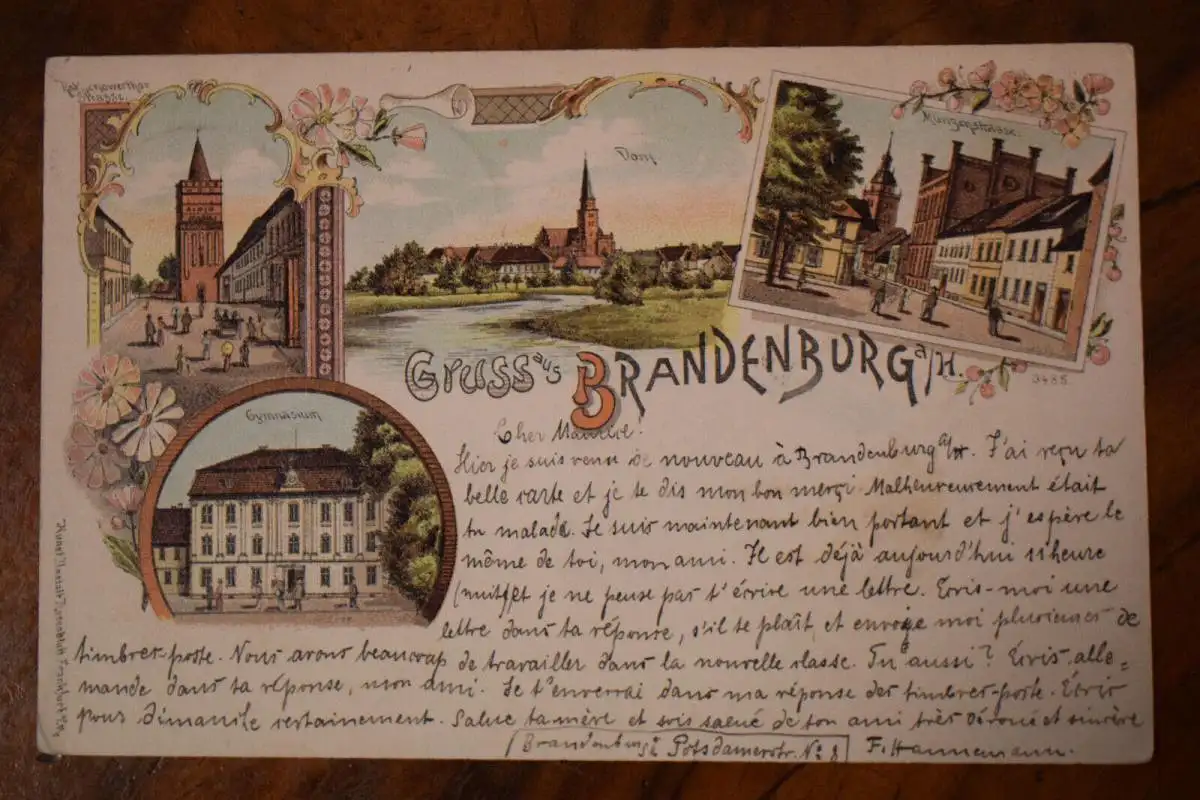 Rathenowerthor
Strasse.
Dom
Münzenstrasse.
Gymnasium
Gruss aus BRANDENBURG a/H.
3485
Cher Maurice!
Hier je suis venu de nouveau à Brandenburg a/H. J'ai reçu ta
belle carte et je te dis mon bon merçi. Malheureusement était
tu malade. Je suis maintenant bien portant et j'espère le
même de toi, mon ami. Il est déjà aujourd'hui 11 heure
(nuit) et je ne peuse pas t'écrire une lettre. Écris-moi une
lettre dans ta réponse, s'il te plaît et envoye moi plusieures de
timbres-poste. Nous avons beaucoup de travailler dans la nouvelle classe. Tu aussi? Écris alle=
mande dans ta réponse, mon ami. Je t'enverrai dans ma réponse des timbres-poste. Écris
pour dimanche certainement. Salue ta mère et sois salué de ton ami très dévoué et sincère
Brandenburg Potsdamerstr. No 8 F. Hannemann.
Frankfurt